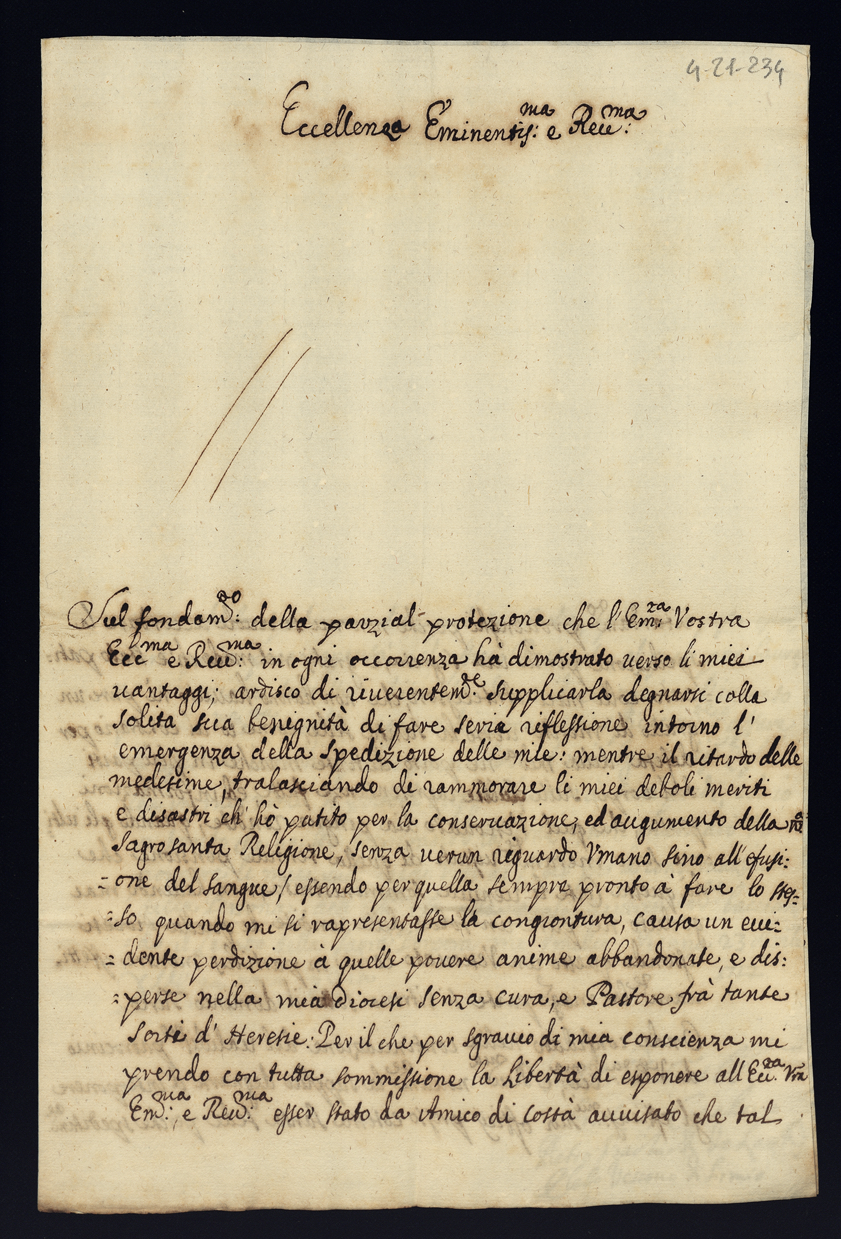 4-21-234
Eccellenza Eminentis:ma e Reve:ma
Sul fondam:to della parzial protezione che l'Em:za Vostra
Ecc:ma e Revd:ma in ogni occorrenza hà dimostrato verso li miei
vantaggi; ardisco di riverentem:te supplicarla degnarsi colla
solita sua benignità di fare seria riflessione intorno l'
emergenza della spedizione delle mie: mentre il ritardo delle
medesime, tralasciando di rammorare li miei deboli meriti
e disastri ch' hò patito per la conservazione, ed augumento della
Sagrosanta Religione, senza verun riguardo Umano sino all' efusi:
:one del sangue / essendo per quella sempre pronto à fare lo stes:
:so quando mi si rapresentasse la congiontura, causa un evi:
:dente perdizione à quelle povere anime abbandonate, e dis:
:perse nella mia diocesi senza cura, e Pastore frà tante
sorti d' Heresie: Per il che per sgravio di mia conscienza mi
prendo con tutta sommissione la libertà di esponere all Ecc:za Vra
Em:ma, e Revd:ma esser stato da Amico di costà avvisato che tal